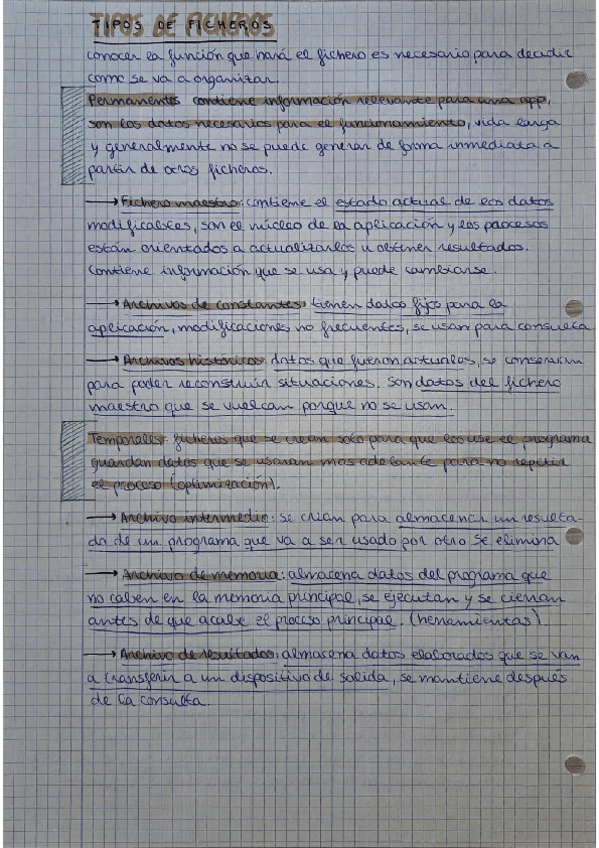 TIPOS DE FICHEROS
conocer la función que hará el fichero es necesario para decidir
como se va a organizar.
Permanentes contiene información relevante para una app,
son los datos necesarios para el funcionamiento, vida larga
y generalmente no se puede generar de forma inmediata a
partir de otros ficheros.
→ Fichero maestro: contiene el estado actual de los datos
modificables, son el núcleo de la aplicación y los procesos
están orientados a actualizarlos u obtener resultados.
Contiene información que se usa y puede cambiarse.
→ Archivos de constantes: tienen datos fijos para la
aplicación, modificaciones no frecuentes, se usan para consulta.
→ Archivos históricos: datos que fueron actuales, se conservan
para poder reconstruir situaciones. Son datos del fichero
maestro que se vuelcan porque no se usan.
Temporales: ficheros que se crean solo para que los use el programa
guardan datos que se usaran mas adelante para no repetir
el proceso (optimización).
→ Archivo intermedio: se crian para almacenar un resulta-
do de un programa que va a ser usado por otro se elimina
→ Archivo de memoria: almacena datos del programa que
no caben en la memoria principal, se ejecutan y se cierran
antes de que acabe el proceso principal. (herramientas)
→ Archivo de resultados: almacena datos elaborados que se van
a transferir a un dispositivo de salida, se mantiene después
de la consulta.